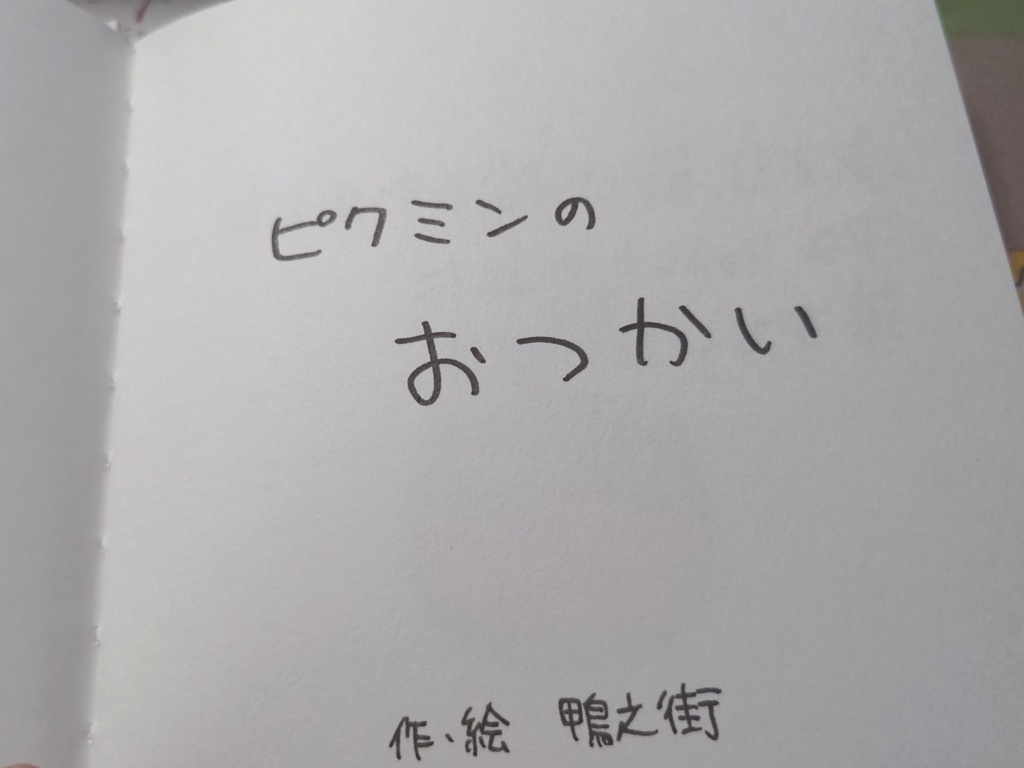 ピクミンの
おつかい
作、絵 鴨之街